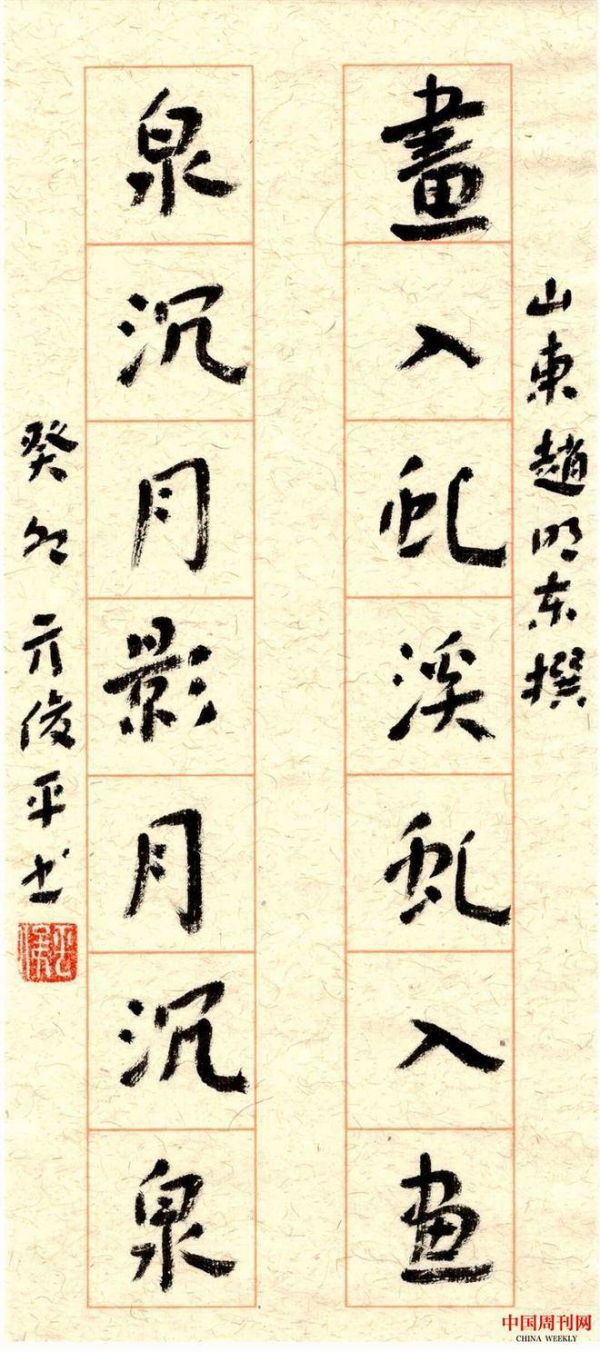 山東趙明东撰
畫入虬溪虬入画
泉沉月影月沉泉
癸卯亓俊平书
中国周刊网
CHINA WEEKLY